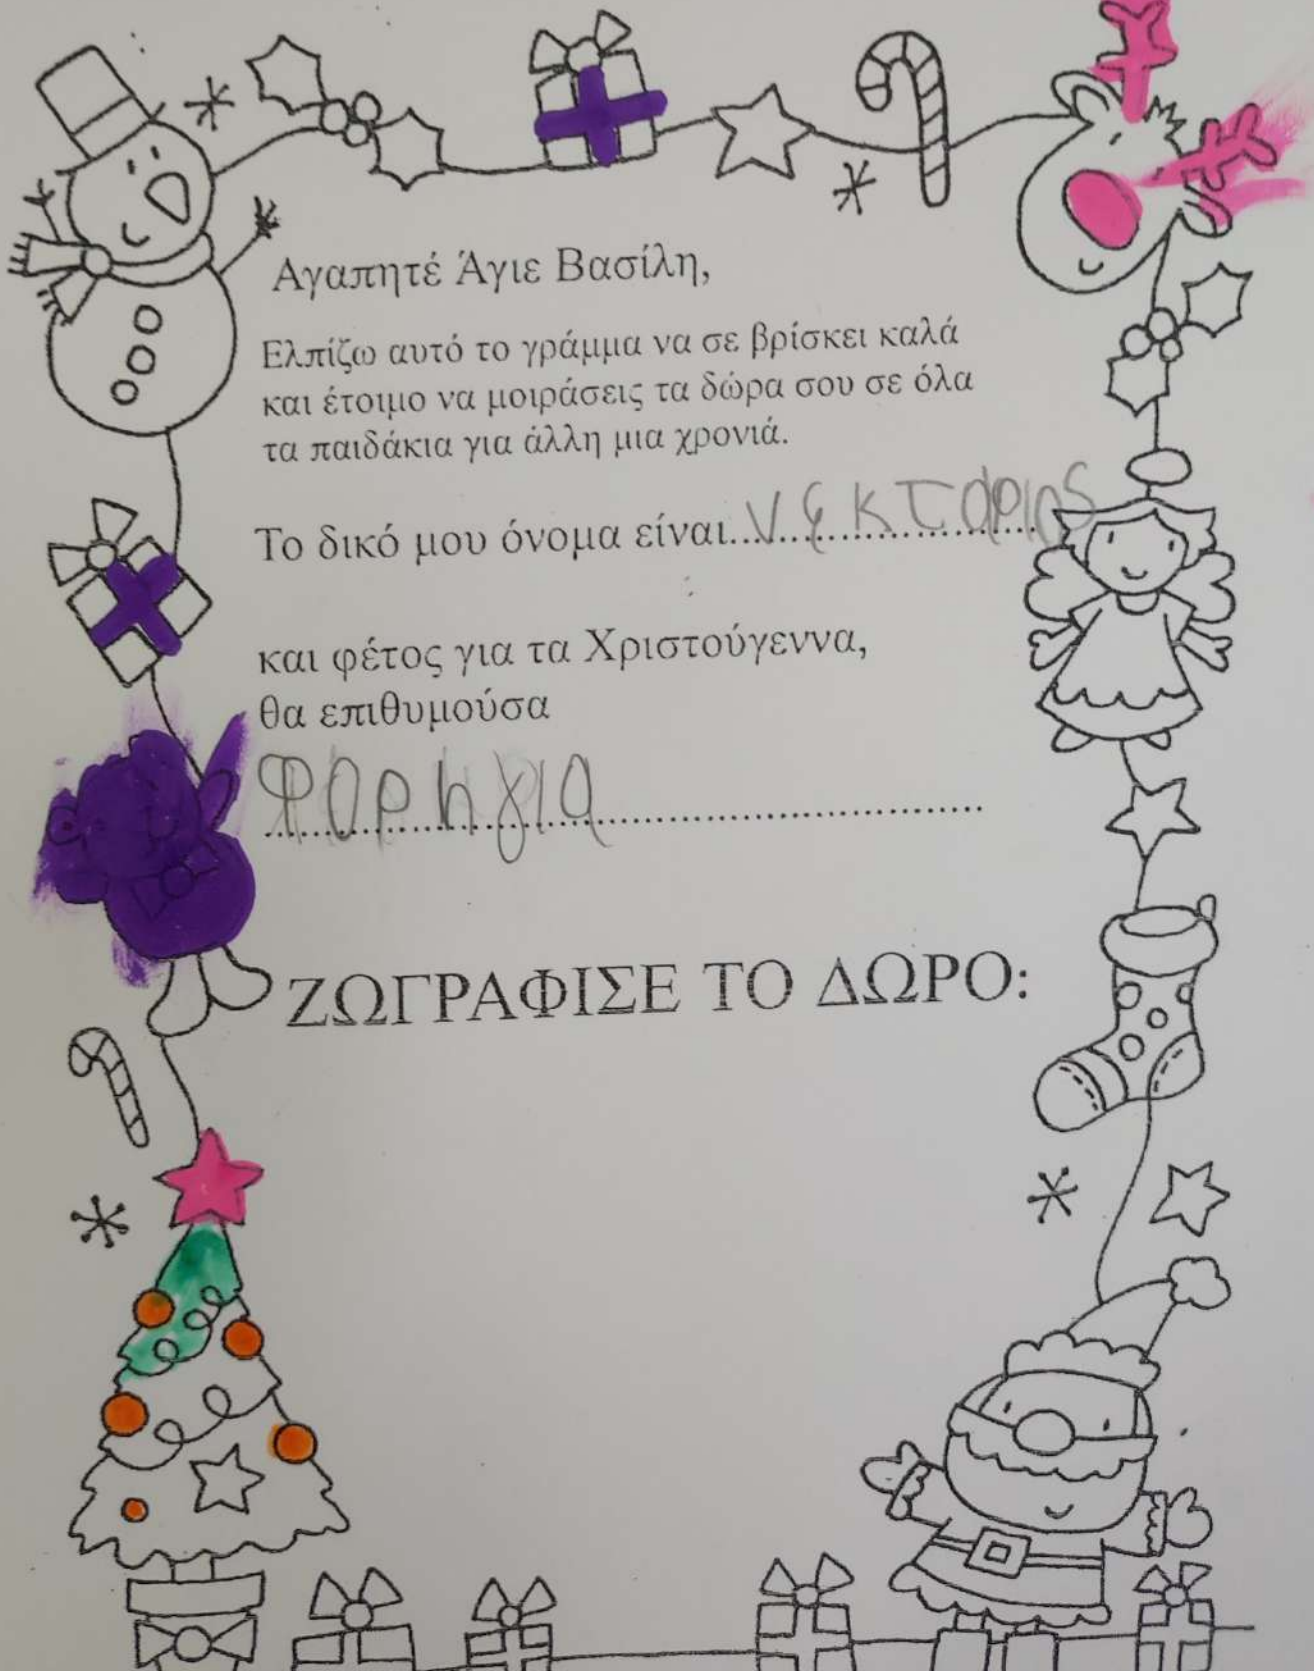 Αγαπητέ Άγιε Βασίλη,
Ελπίζω αυτό το γράμμα να σε βρίσκει καλά
και έτοιμο να μοιράσεις τα δώρα σου σε όλα
τα παιδάκια για άλλη μια χρονιά.
Το δικό μου όνομα είναι..Νεκτάριος
και φέτος για τα Χριστούγεννα,
θα επιθυμούσα
φορηγια
ΖΩΓΡΑΦΙΣΕ ΤΟ ΔΩΡΟ: